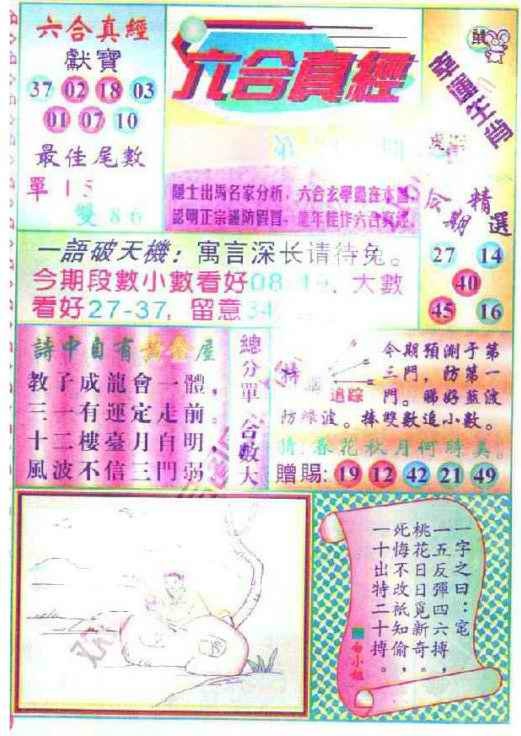 六合真經
獻寶
37 02 18 03
01 07 10
最佳尾數
單 15
雙 86
六合真經
鼠
隱士出馬名家分析，六合玄學
認明正宗謹防假冒，龍年佳作六合真經
精選
27 14
40
45 16
一語破天機：寓言深长请待兔。
今期段數小數看好08-19、大數
看好27-37，留意34
詩中自有黃金屋
教子成龍會一體，
三一有運定走前。
十二樓臺月自明
風波不信三門弱
總分單、合數大
特
追踪
今期預測于第
三門，防第一
門。睇好蓝波
防绿波。捧雙數追小數。
猜：春花秋月何時美
贈賜：19 12 42 21 49
一字之曰：宅
一五反彈四六搏，
桃花日日覓新奇。
死悔不改祇知偷，
一十出特二十搏。
白小姐